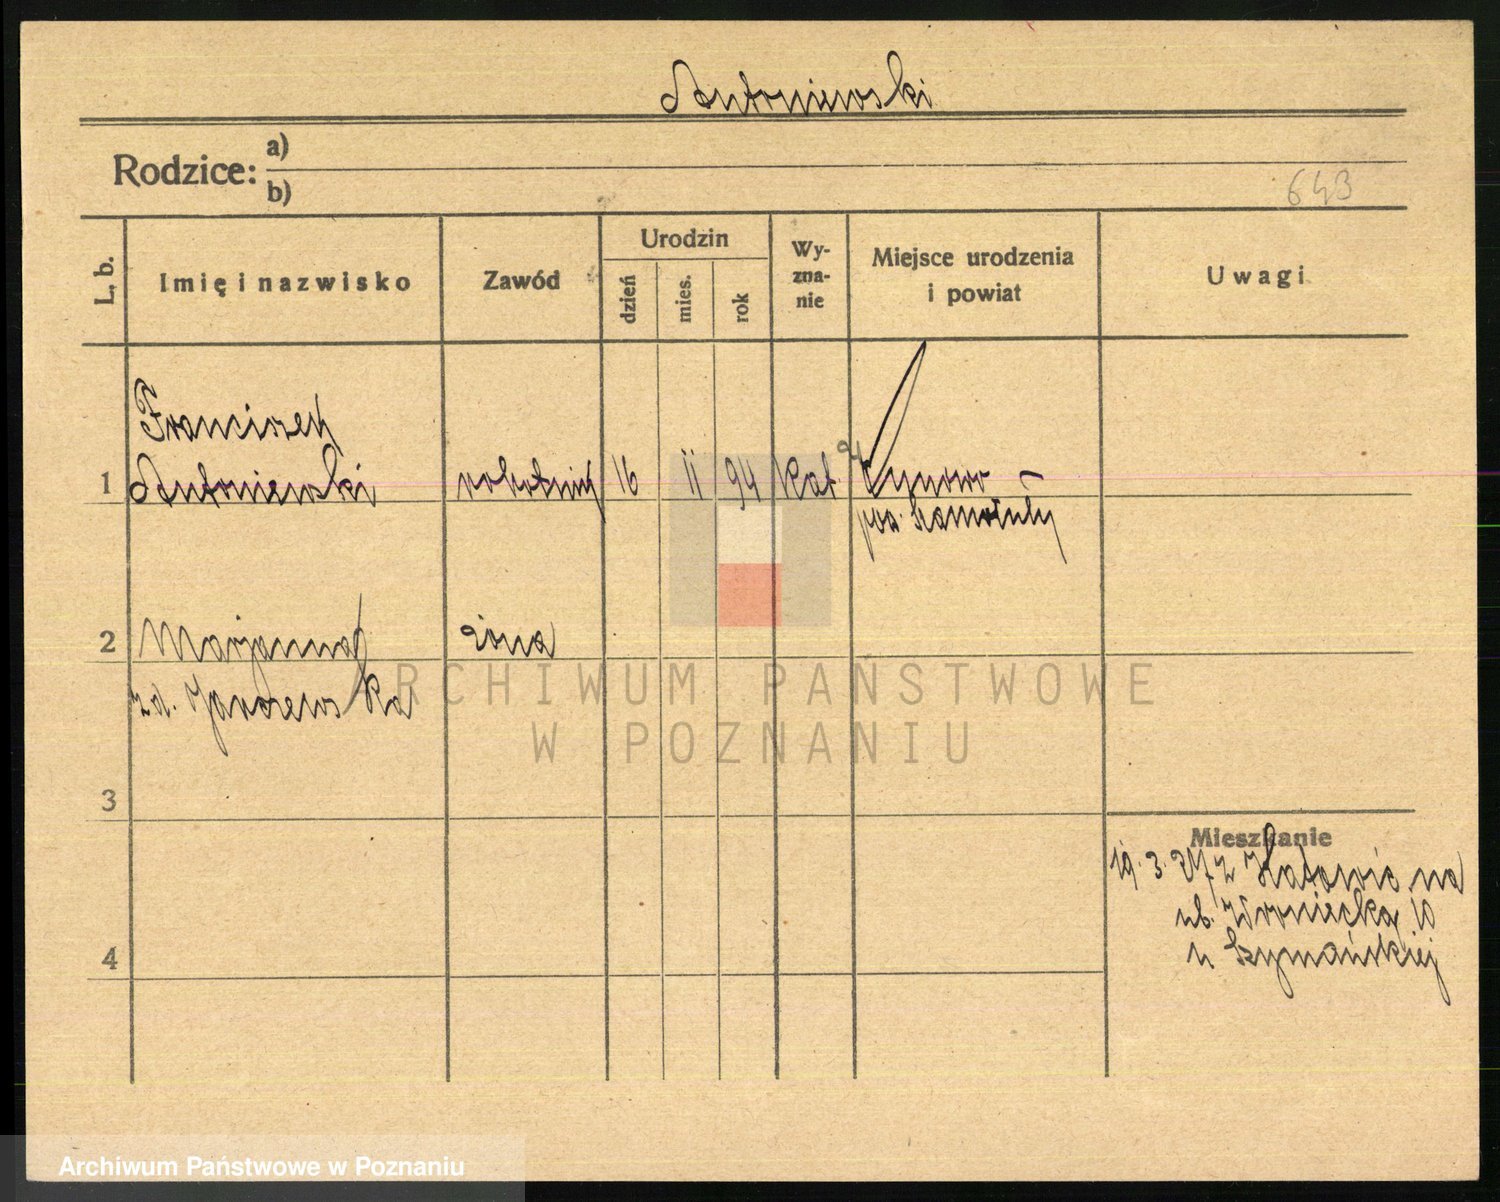 Antoniewski
Rodzice: a)
b)
643
L. b.
Imię i nazwisko
Zawód
Urodzin
dzień
mies.
rok
Wy-
zna-
nie
Miejsce urodzenia
i powiat
Uwagi
Franciszek
1 Antoniewski robotnik 16 II 94 Kat
pow. Szamotuły
2 Marjanna żona
z d. Jaroszewska
ARCHIWUM PAŃSTWOWE
W POZNANIU
3
Mieszkanie
19. 3. z Katowic na
ul. Wroniecka 10
4
u Szymańskiej
Archiwum Państwowe w Poznaniu